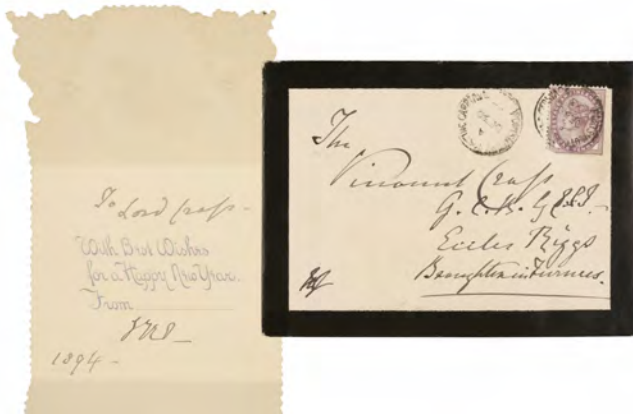 To Lord Cross -
With Best Wishes
for a Happy New Year.
From
1894 -
The
Viscount Cross
G.C.B. G.C.S.I. -
Eccles Riggs
Broughton in Furness.